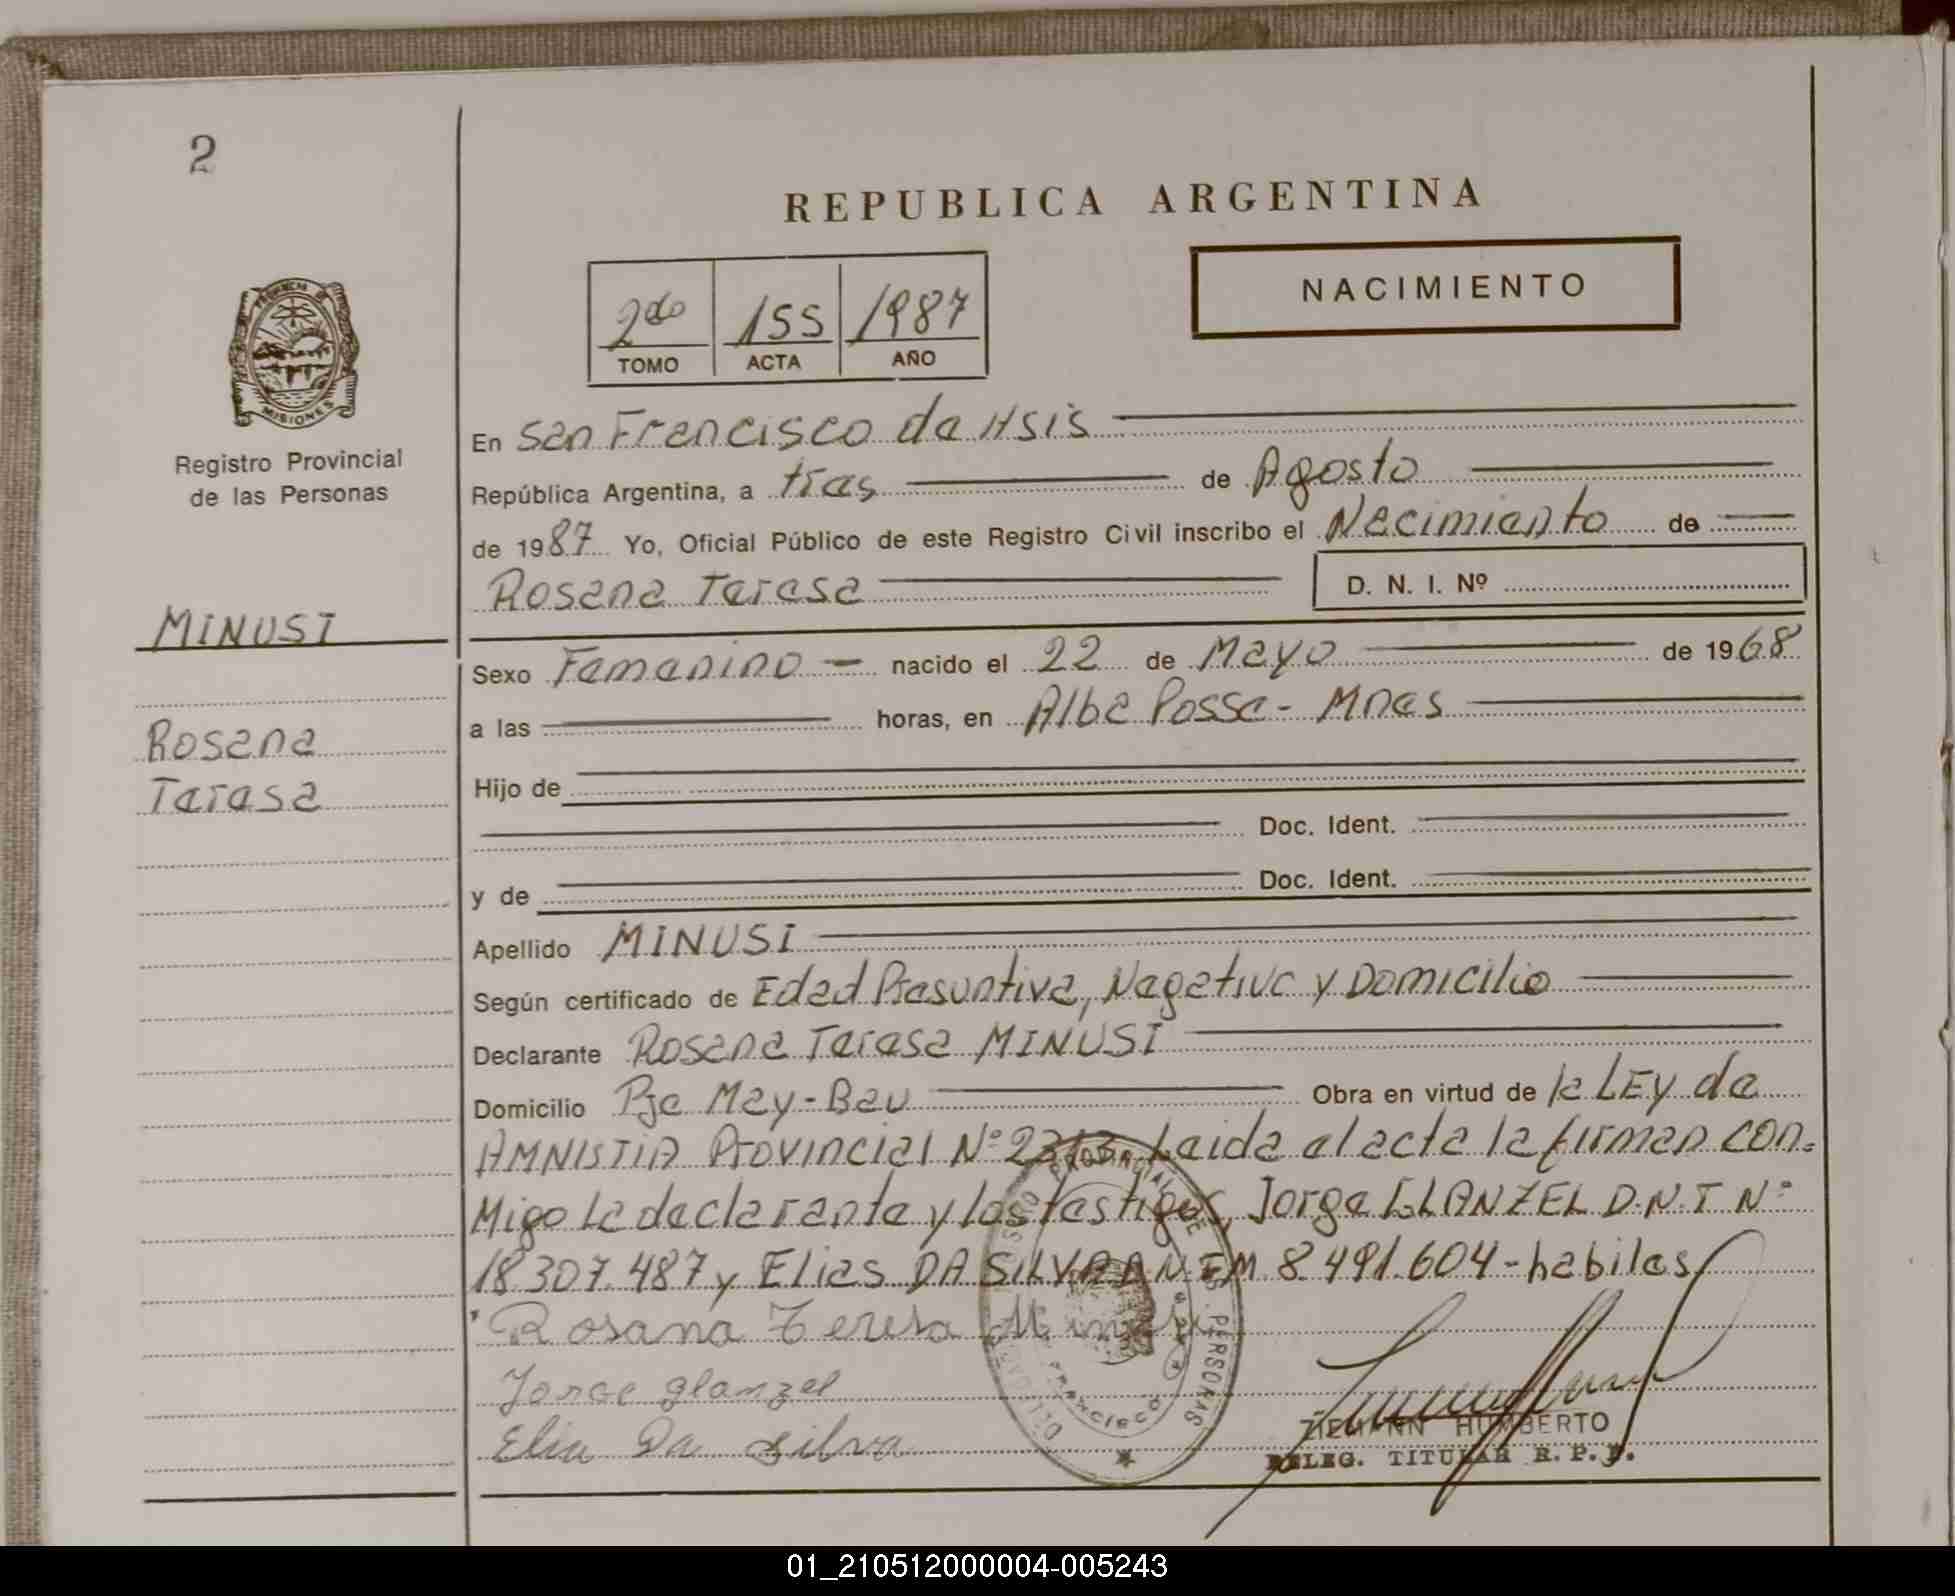 2
REPUBLICA ARGENTINA
NACIMIENTO
2do 155 1987
TOMO ACTA AÑO
PROVINCIA DE
MISIONES
Registro Provincial
de las Personas
MINUSI
Rosana
Teresa
En San Francisco de Asis
República Argentina, a tres de Agosto
de 1987 Yo, Oficial Público de este Registro Civil inscribo el Nacimiento de
Rosana Teresa D. N. I. Nº
Sexo Femenino nacido el 22 de Mayo de 1968
a las horas, en Alba Posse - Mnes
Hijo de
Doc. Ident.
y de Doc. Ident.
Apellido MINUSI
Según certificado de Edad Presuntiva, Negativo y Domicilio
Declarante Rosana Teresa MINUSI
Domicilio Pje May-Bau Obra en virtud de la LEy de
AMNISTIA Provincial Nº 2313 Leida el acta la firman con=
Migo la declarante y los testigos, Jorge GLANZEL D.N.I Nº
18.307.487 y Elias DA SILVA DNI M 8.491.604 - habiles
Rosana Teresa Minusi
Jorge glanzel
Elia Da Silva
PROVINCIAL DE PERSONAS
FRANCISCO
ZIEMANN HUMBERTO
DELEG. TITULAR R. P. P.
01_210512000004-005243